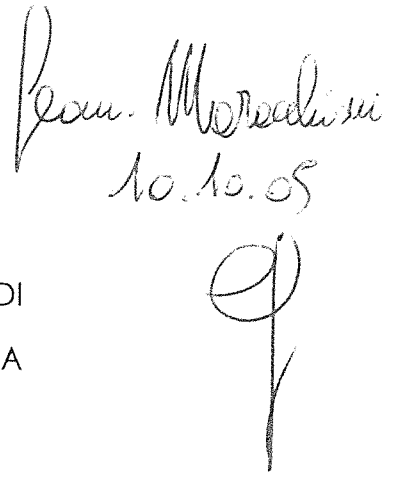 Geom. Moracchini
10.10.05
DI
A